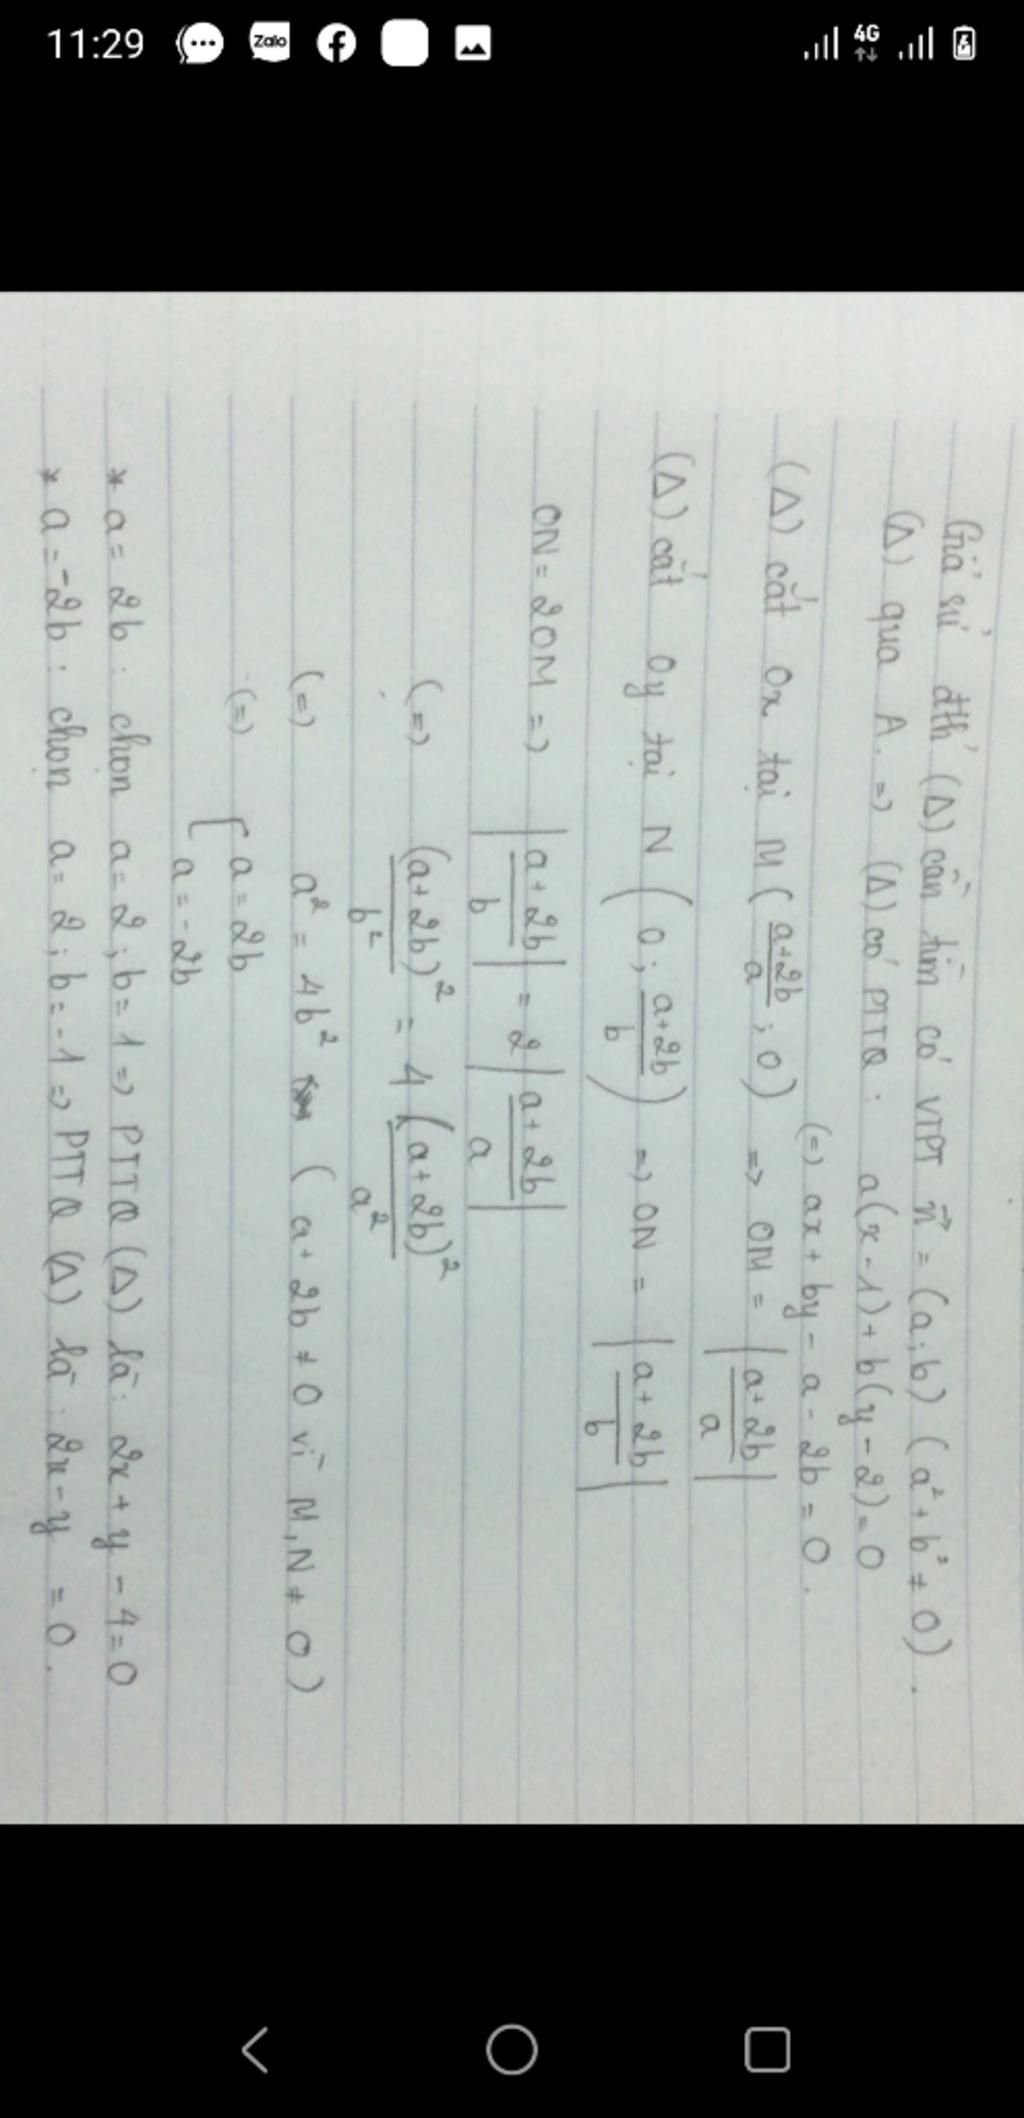 11:29
Zalo
4G
Giả sử đth' (Δ) cần tìm có VTPT n⃗ = (a; b) (a² + b² ≠ 0).
(Δ) qua A. => (Δ) có PTTQ : a(x - 1) + b(y - 2) = 0
(=) ax + by - a - 2b = 0.
(Δ) cắt Ox tại M ( (a+2b)/a ; 0 ) => OM = | (a+2b)/a |
(Δ) cắt Oy tại N ( 0 ; (a+2b)/b ) => ON = | (a+2b)/b |
ON = 2OM => | (a+2b)/b | = 2 | (a+2b)/a |
(=) (a+2b)²/b² = 4 (a+2b)²/a²
(=) a² = 4b² ( a + 2b ≠ 0 vì M, N ≠ O )
(=) [ a = 2b
a = -2b
* a = 2b : chọn a = 2 ; b = 1 => PTTQ (Δ) là : 2x + y - 4 = 0
* a = -2b : chọn a = 2 ; b = -1 => PTTQ (Δ) là : 2x - y = 0.